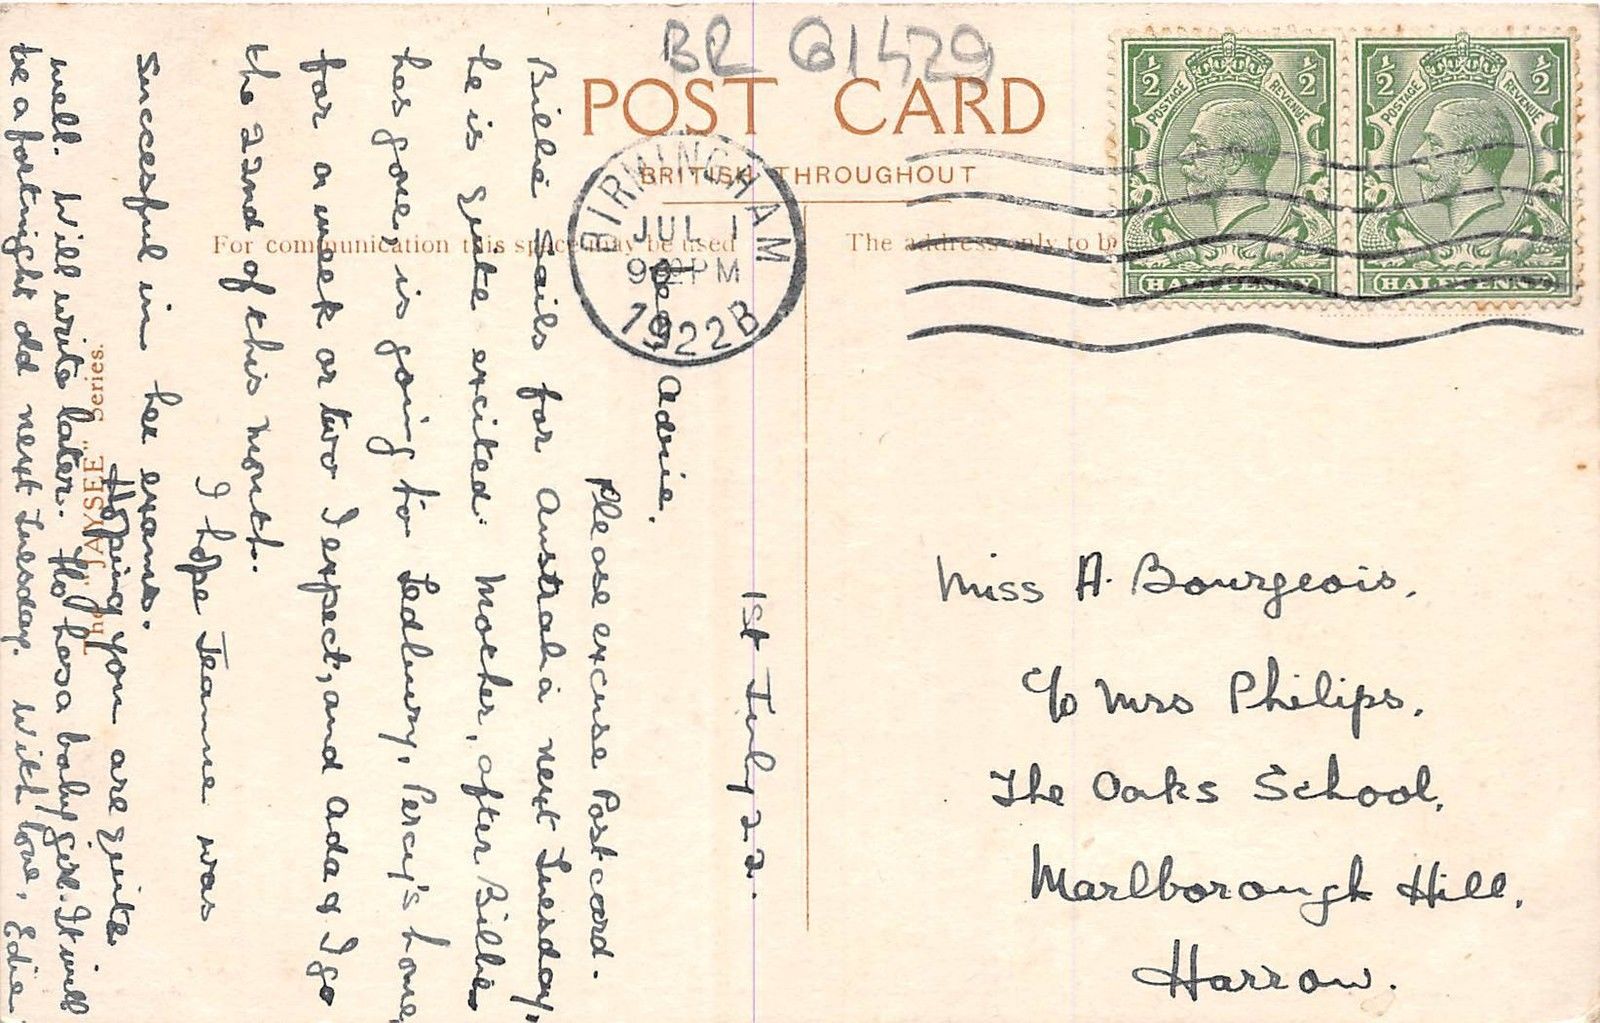 BR G1429
POST CARD
BRITISH THROUGHOUT
For communication this space may be used
The address only to be
The "JAYSEE" Series.
BIRMINGHAM
JUL 1
PM
1922 B
½ POSTAGE REVENUE ½
HALFPENNY
½ POSTAGE REVENUE ½
HALFPENNY
1st July 22.
Dear Advie.
Please excuse Postcard.
Billie sails for Australia next Tuesday,
he is quite excited. Mother, after Billie
has gone, is going to Ledbury, Percy's home,
for a week or two I expect, and Ada & I go
the 22nd of this month.
I hope Jeanne was
successful in her exams.
Hoping you are quite
well. Will write later. Flo has a baby girl. It will
be a fortnight old next Tuesday. With love, Edie.
Miss A. Bourgeois.
c/o Mrs Philips.
The Oaks School,
Marlborough Hill,
Harrow.